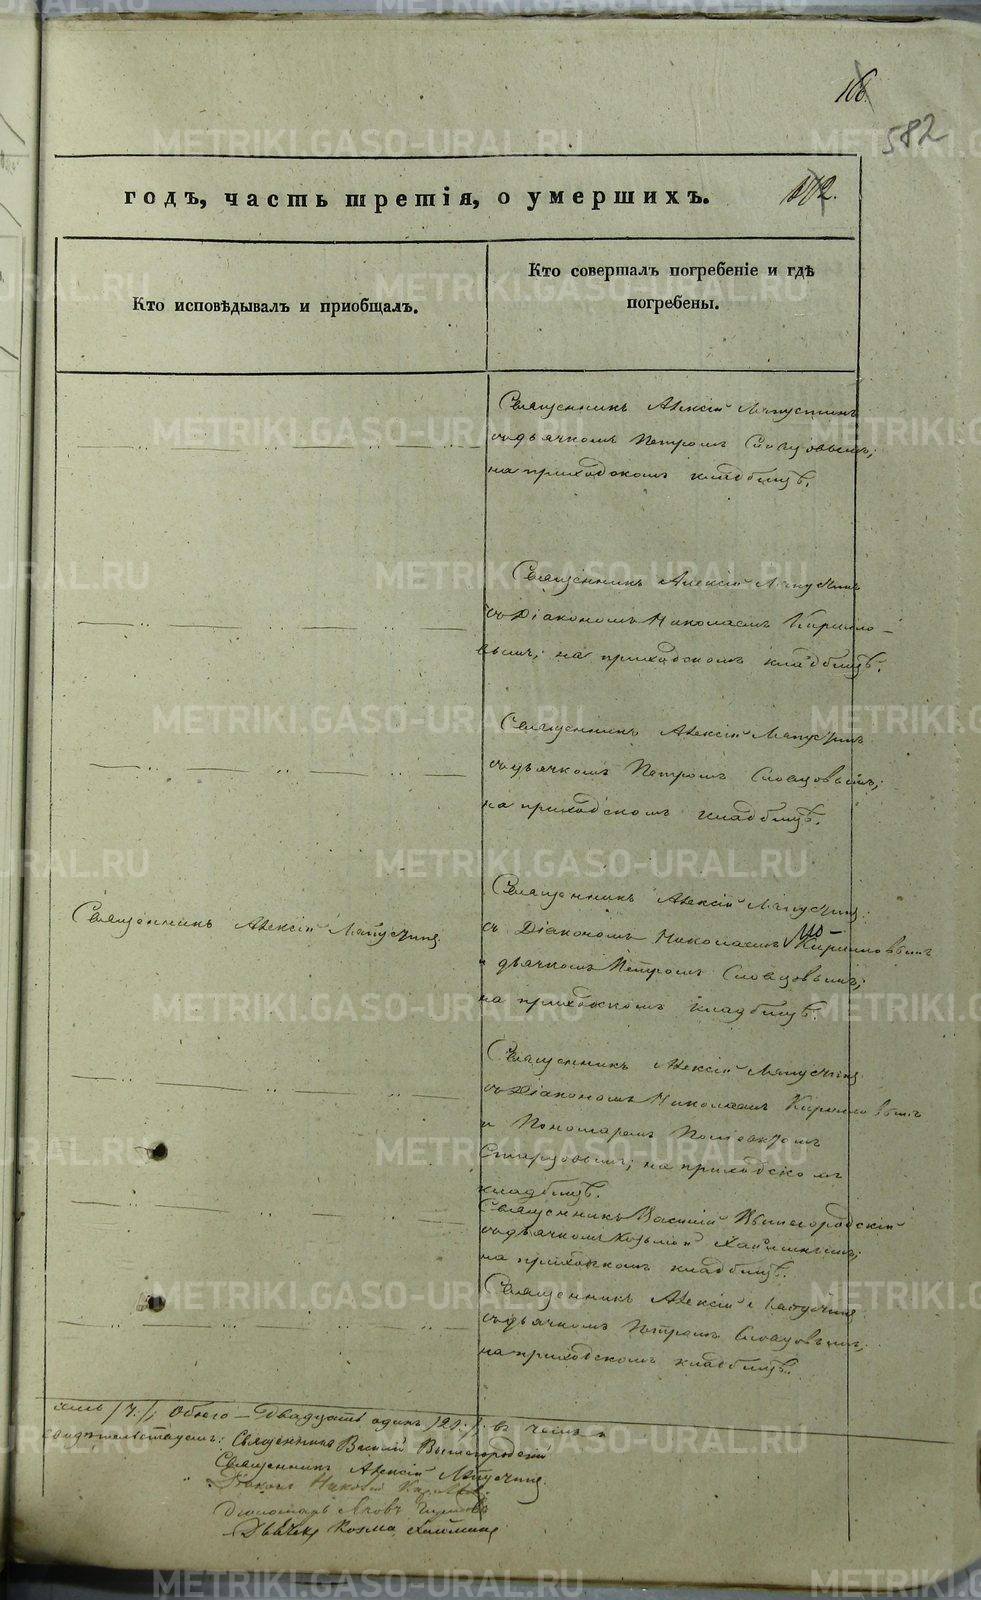 166.
582
годъ, часть третія, о умершихъ.
172.
Кто исповѣдывалъ и приобщалъ.
Кто совершалъ погребеніе и гдѣ
погребены.
Священникъ Алексій Ляпустинъ
съ дьячкомъ Петромъ Словцовымъ;
на приходскомъ кладбищѣ.
Священникъ Алексій Ляпустинъ
съ Діакономъ Николаемъ Кирилло-
вымъ; на приходскомъ кладбищѣ.
Священникъ Алексій Ляпустинъ
съ дьячкомъ Петромъ Словцовымъ;
на приходскомъ кладбищѣ.
Священникъ Алексій Ляпустинъ
Священникъ Алексій Ляпустинъ
съ Діакономъ Николаемъ Кирилловымъ
и дьячкомъ Петромъ Словцовымъ;
на приходскомъ кладбищѣ.
Священникъ Алексій Ляпустинъ
съ Діакономъ Николаемъ Кирилловымъ
и Пономаремъ
на приходскомъ
кладбищѣ.
Священникъ Василій Вышегородскій
съ дьячкомъ Козьмой
на приходскомъ кладбищѣ.
Священникъ Алексій Ляпустинъ
съ дьячкомъ Петромъ Словцовымъ;
на приходскомъ кладбищѣ.
Обоего – Двадцать одинъ /21./. въ чемъ и
свидѣтельствуемъ: Священникъ Василій Вышегородскій
Священникъ Алексій Ляпустинъ
Діаконъ Николай Кирилловъ
Пономарь Яковъ
Дьячекъ Козма
METRIKI.GASO-URAL.RU